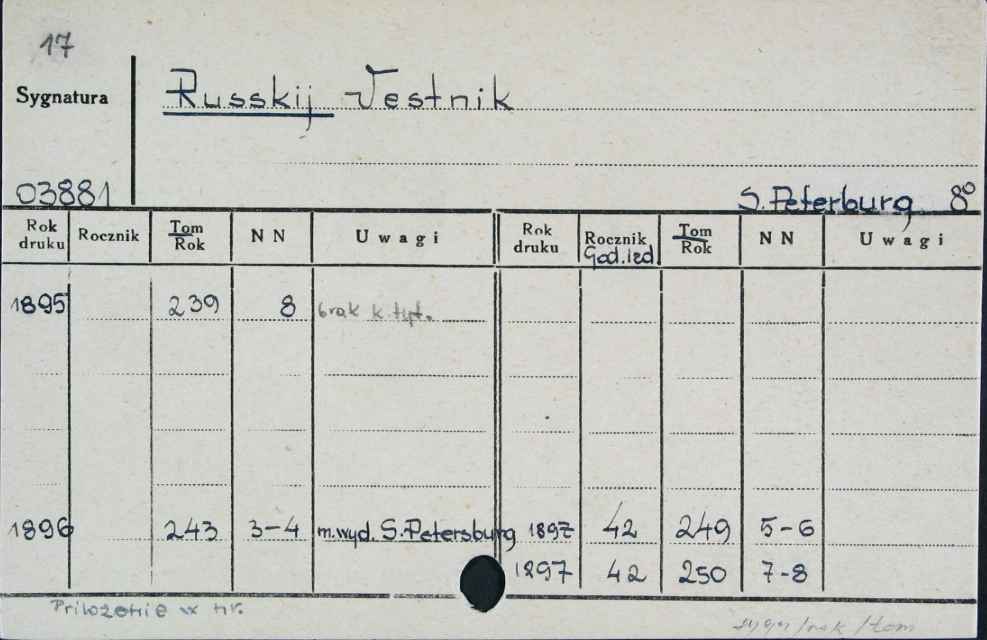 17
Sygnatura
Russkij Vestnik
03881
S. Peterburg 8°
Rok druku Rocznik Tom Rok N N Uwagi Rok druku Rocznik God. izd. Tom Rok N N Uwagi
1895 239 8 brak k. tyt.
1896 243 3-4 m. wyd. S. Petersburg 1897 42 249 5-6
1897 42 250 7-8
Priloženie w nr.
sygn/rok/tom